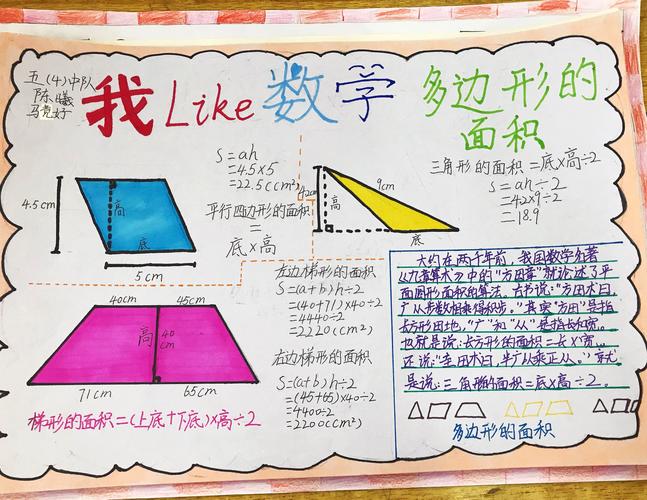 五(4)中队
陈曦
我Like数学
多边形的
面积
S=ah
=4.5×5
=22.5(cm²)
平行四边形的面积
=
底×高
4.5cm
高
底
5cm
9cm
高
底
三角形的面积=底×高÷2
S=ah÷2
=4.2×9÷2
=18.9
左边梯形的面积
S=(a+b)h÷2
=(40+71)×40÷2
=4440÷2
=2220(cm²)
右边梯形的面积
S=(a+b)h÷2
=(45+65)×40÷2
=4400÷2
=2200(cm²)
40cm
45cm
高
40
cm
71cm
65cm
梯形的面积=(上底+下底)×高÷2
大约在两千年前，我国数学名著
《九章算术》中的"方田章"就论述了平
面图形面积的算法。书说："方田术曰，
广从步数相乘得积步。"其实"方田"是指
长方形田地，"广"和"从"是指长和宽。
也就是说：长方形的面积=长×宽。
还说："圭田术曰，半广以乘正从。"就
是说：三角形的面积=底×高÷2。
多边形的面积